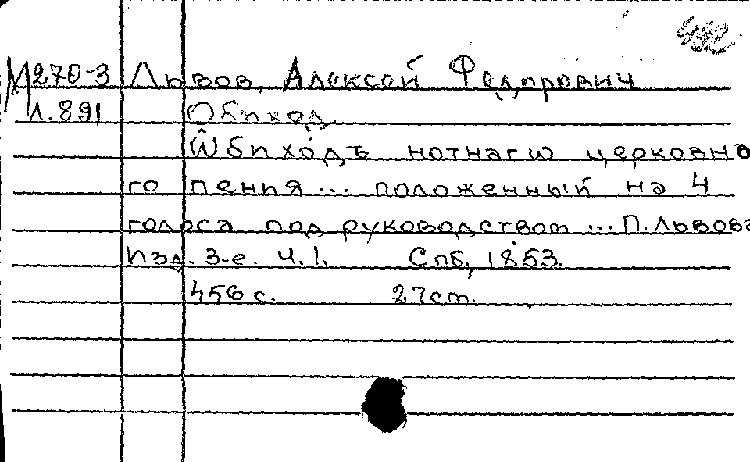 М270-3 Львов, Алексей Федорович
Л.891 Обиход.
Ѡбиходъ нотнагѡ церковна
го пения... положенный на 4
голоса под руководством ... П.Львова
Изд. 3-е. Ч.I. Спб, 1853.
456 с. 27ст.